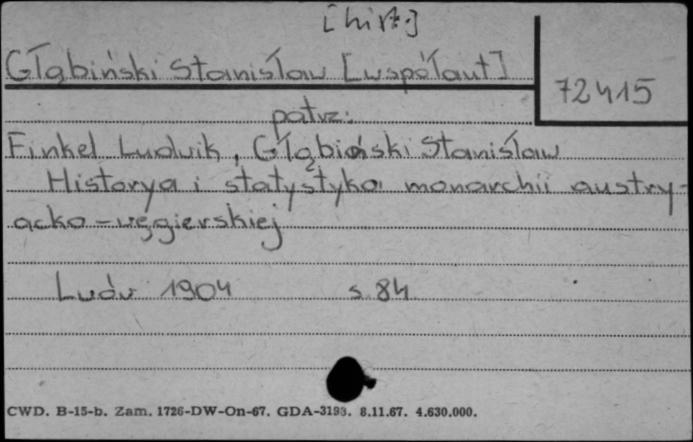 [hist.]
Głąbiński Stanisław [współaut]
72415
patrz:
Finkel Ludwik, Głąbiński Stanisław
Historya i statystyka monarchii austry-
acko-węgierskiej
Lwów 1904 s. 84
CWD. B-15-b. Zam. 1726-DW-On-67. GDA-3193. 8.11.67. 4.630.000.